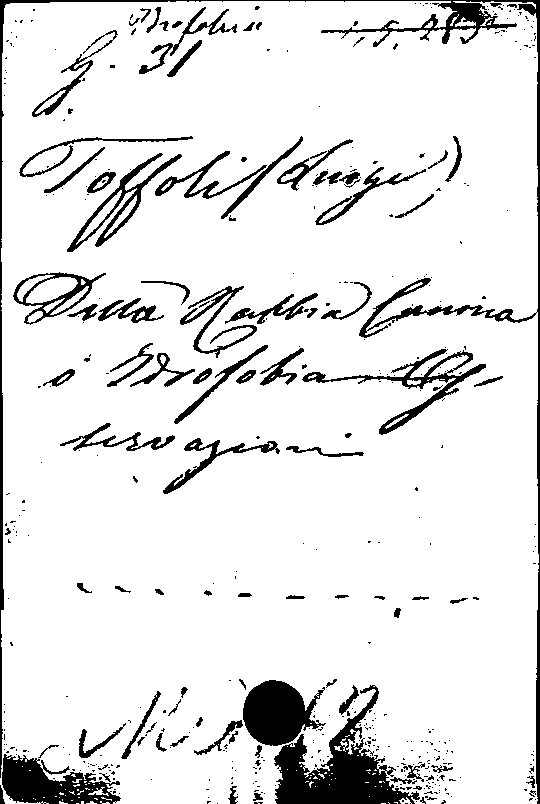 Idrofobia 1, 5, 283
G. 31
Toffoli (Luigi)
Della Rabbia Canina
o Idrofobia Os-
servazioni